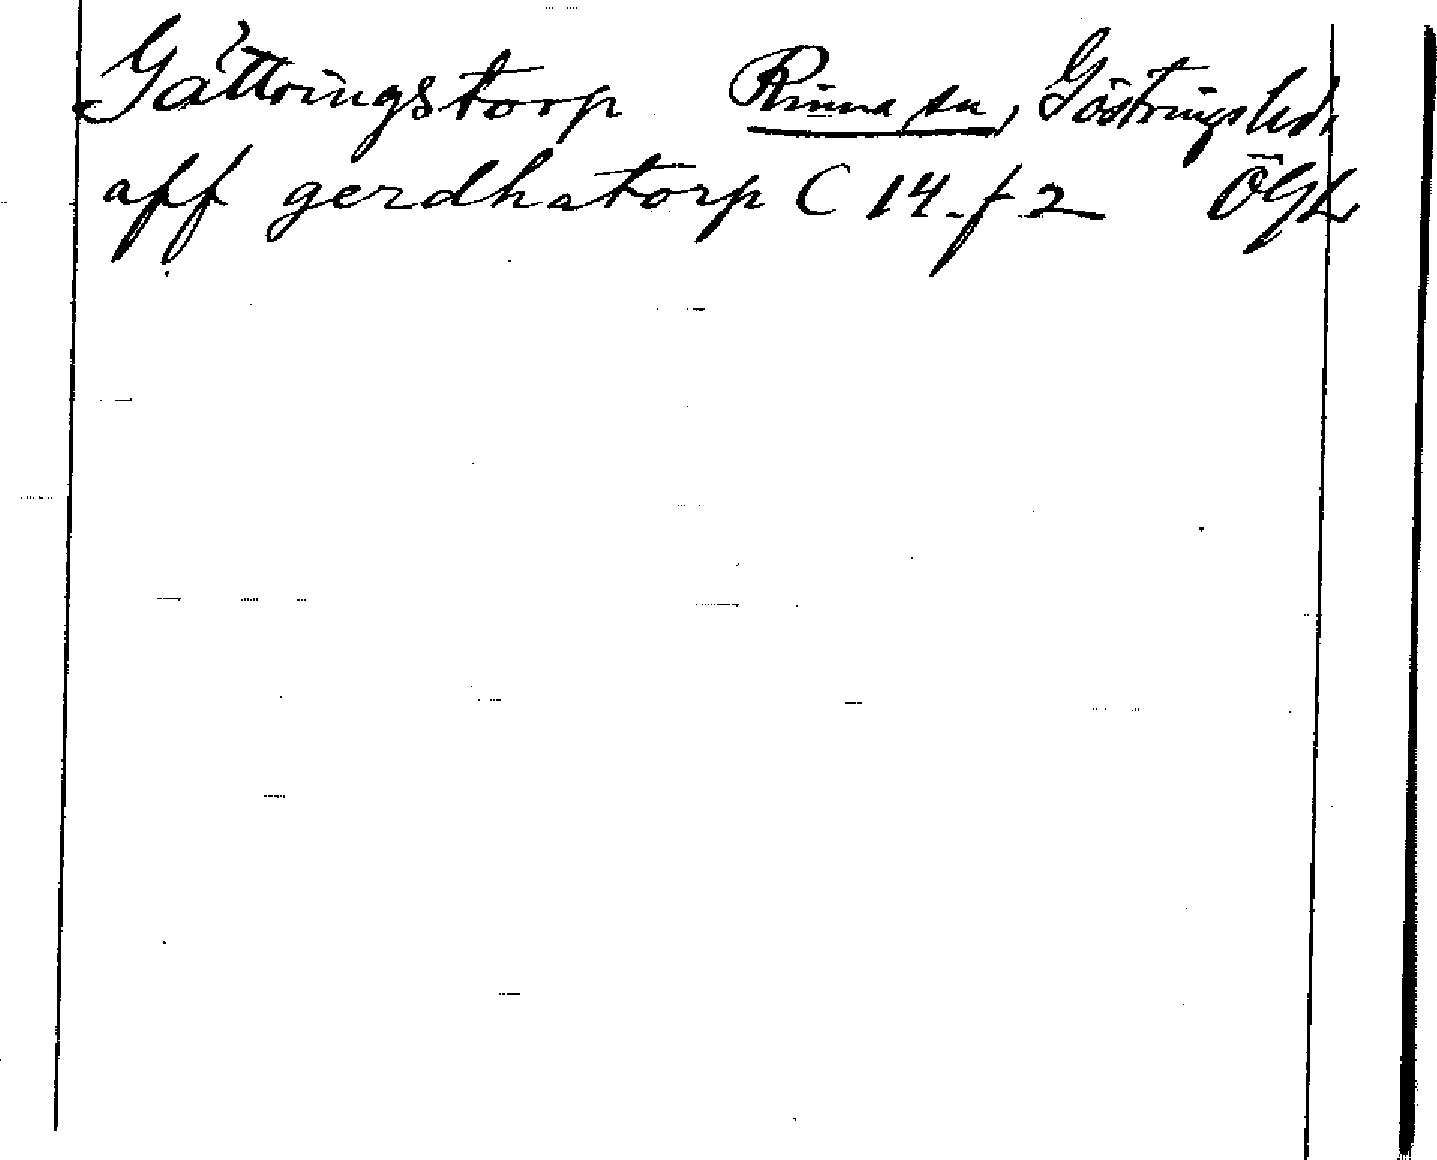 Gättringstorp Rinna sn, Göstringshd,
aff gerdhatorp C 14 f 2 ÖGL